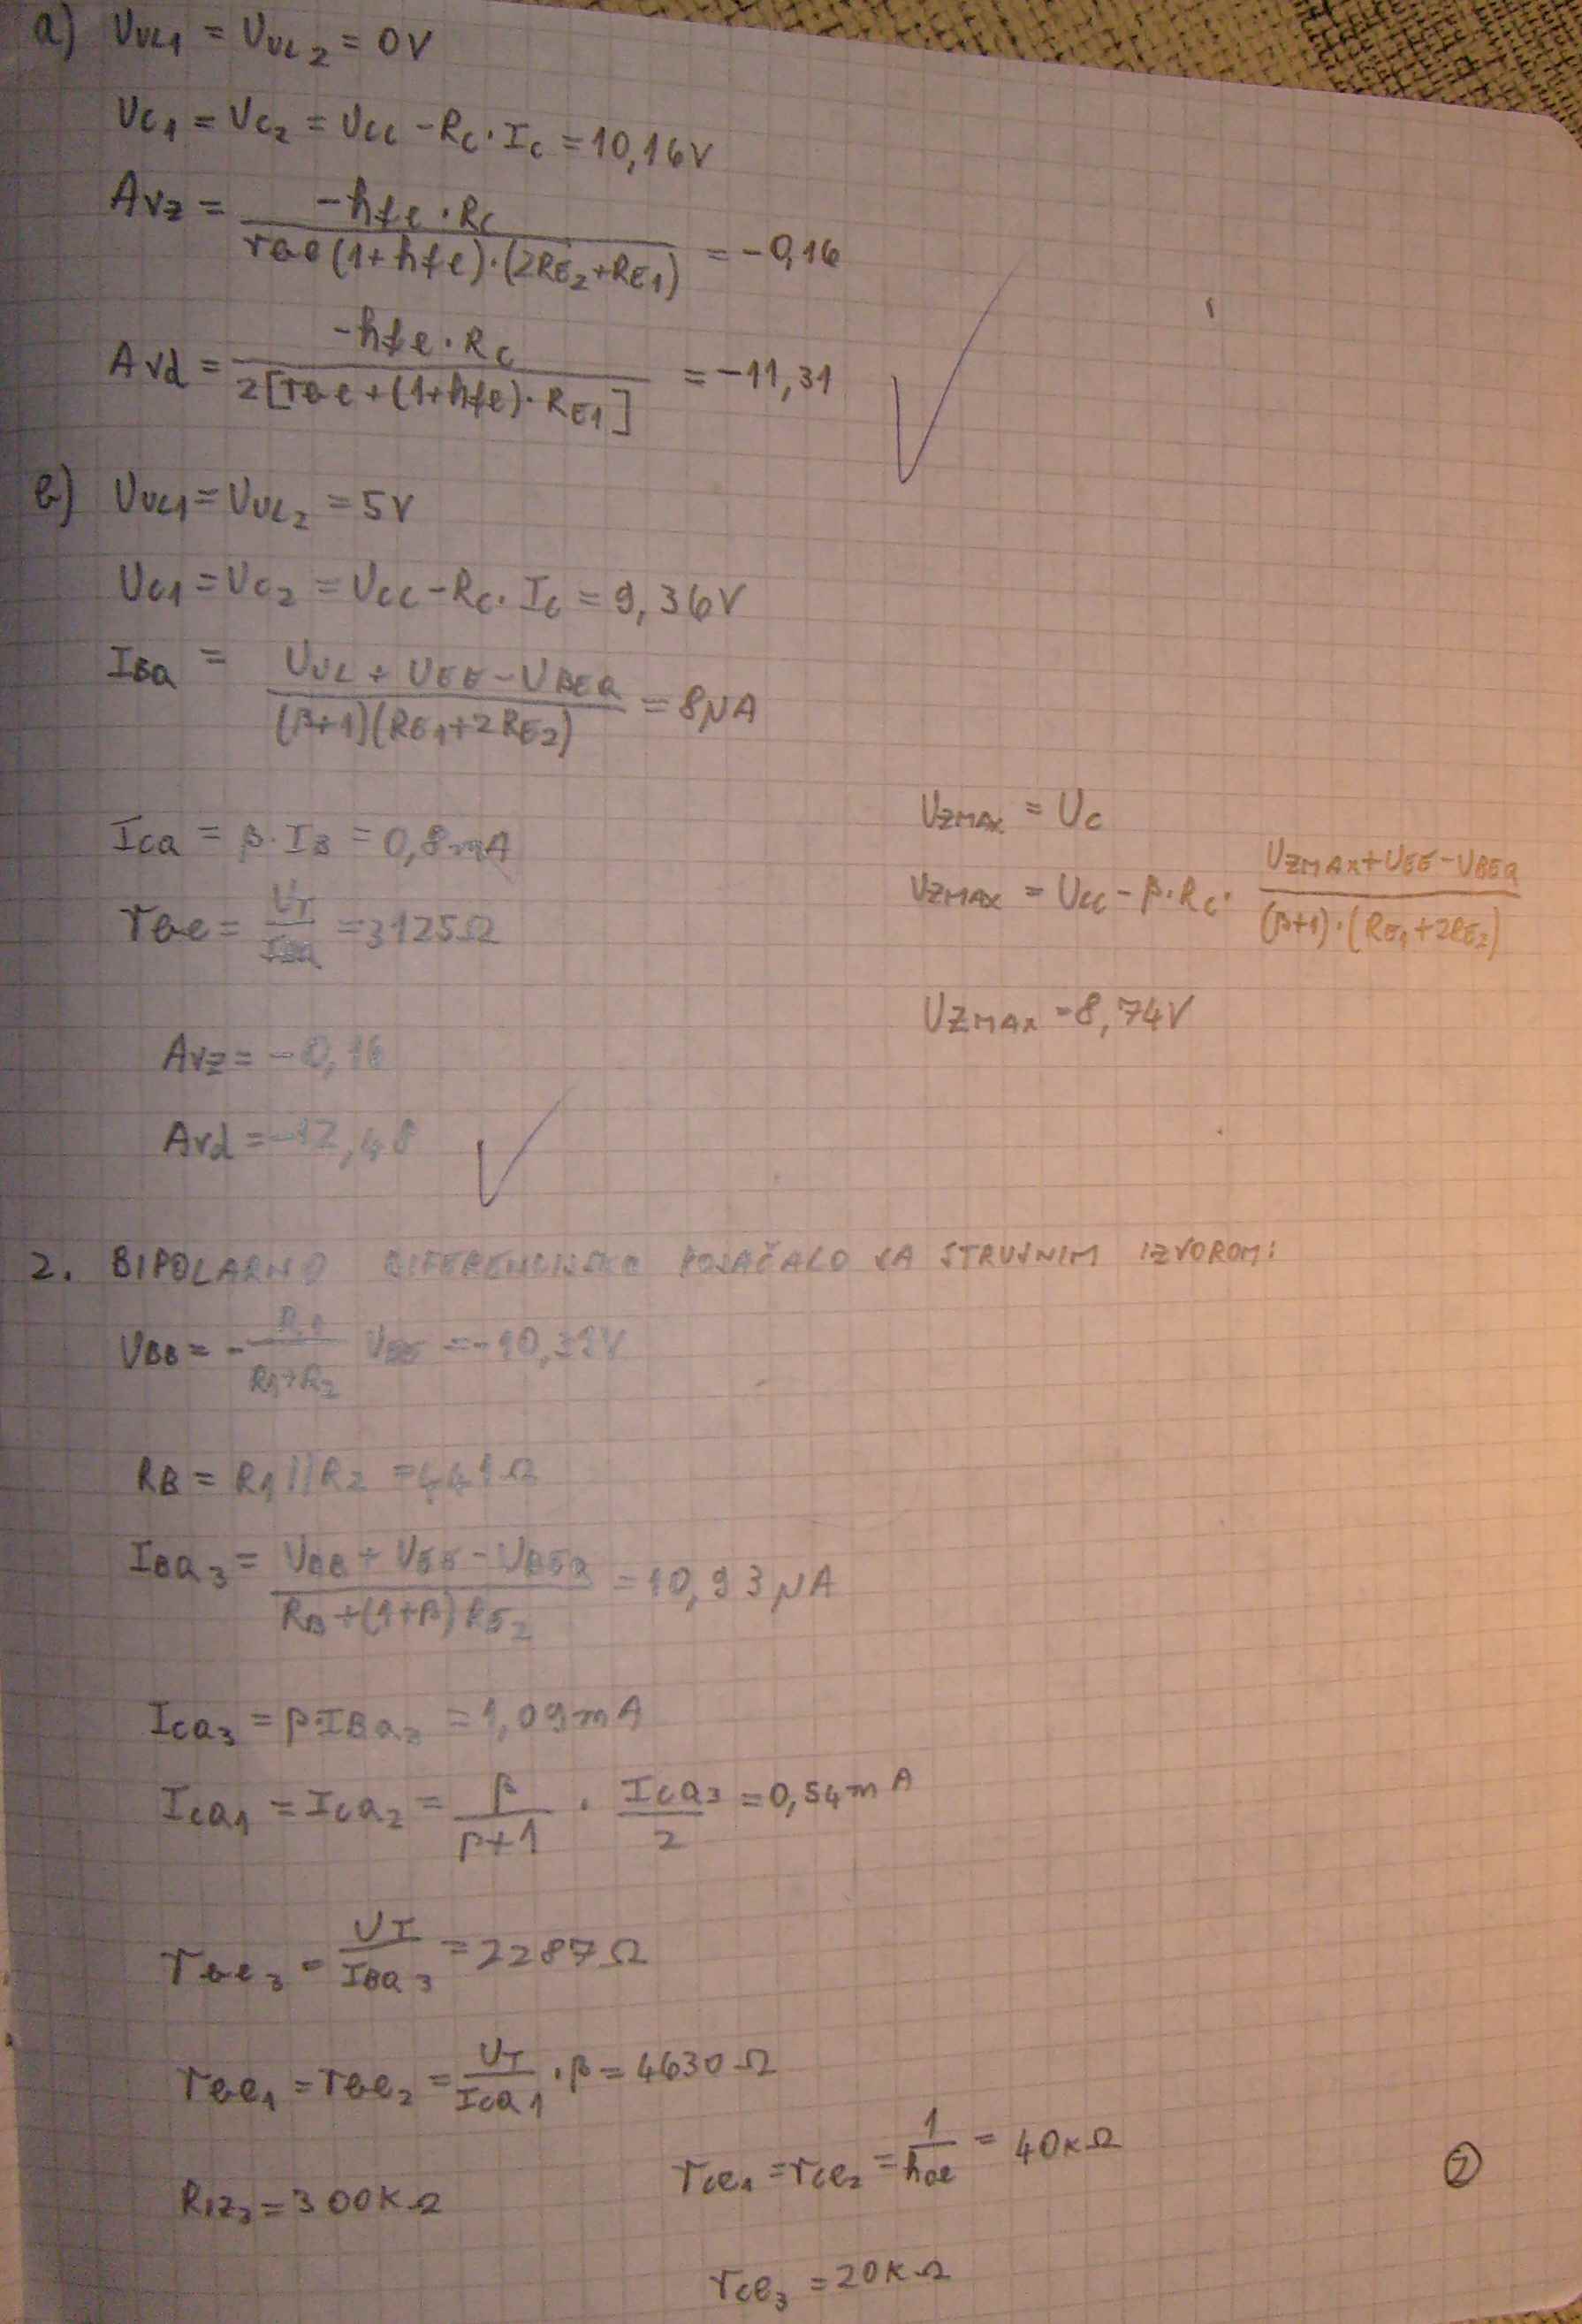 a) UUL1 = UUL2 = 0V
UC1 = UC2 = UCC - RC · IC = 10,16V
AVz = -hfe · RC / rbe(1+hfe)·(2RE2+RE1) = -0,16
AVd = -hfe · RC / 2[rbe+(1+hfe)·RE1] = -11,31
b) UUL1 = UUL2 = 5V
UC1 = UC2 = UCC - RC · IC = 9,36V
IBQ = UUL + UEE - UBEQ / (β+1)(RE1+2RE2) = 8μA
ICQ = β · IB = 0,8mA
rbe = UT / IBQ = 3125Ω
UZMAX = UC
UZMAX = UCC - β·RC · UZMAX+UEE-UBEQ / (β+1)·(RE1+2RE2)
UZMAX = 8,74V
AVz = -0,16
AVd = -12,48
2. BIPOLARNO DIFERENCIJSKO POJAČALO SA STRUJNIM IZVOROM:
UBB = - R1 / R1+R2 UEE = -10,
RB = R1||R2 = 441Ω
IBQ3 = UBB + UEE - UBEQ / RB+(1+β)RE2 = 10,93μA
ICQ3 = β·IBQ3 = 1,09mA
ICQ1 = ICQ2 = β / β+1 · ICQ3 / 2 = 0,54mA
rbe3 = UT / IBQ3 = 2287Ω
rbe1 = rbe2 = UT / ICQ1 · β = 4630Ω
RIZ3 = 300KΩ
rce1 = rce2 = 1 / hoe = 40KΩ
rce3 = 20KΩ
2